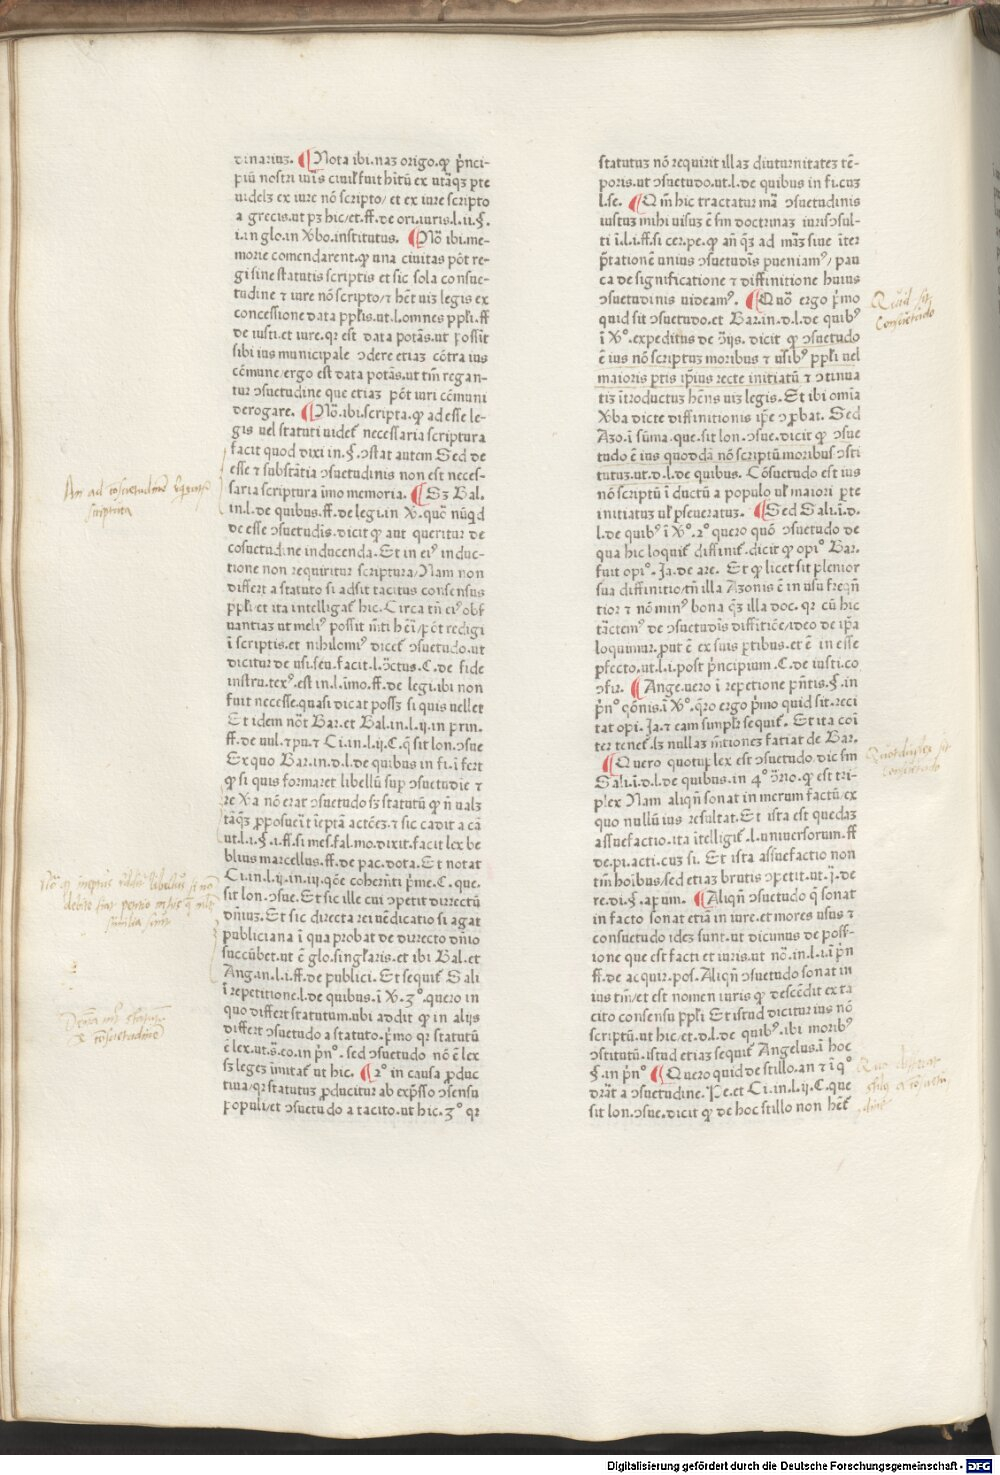 dinariuz. ¶Nota ibi.naz origo.qp p̄nci-
piū nostri iuīs ciuīl fuit hītū ex utāqz pte
uidelz ex iure nō scripto/ et ex iure scripto
a grecis.ut pz hic/et.ff.de ori.iuris.l.ii.§.
i.in glo.in Xbo.institutus. ¶Nō ibi.me-
morie comendarent.qp una ciuitas pōt re-
gi sine statutis scriptis et sic sola consue-
tudine ⁊ iure nō scripto/⁊ hēt uiz legis ex
concessione data pplīs.ut.l.omnes ppli.ff
de iusti.et iure.qr est data potās.ut possit
sibi ius municipale ɔdere etiaz cōtra ius
cōmune/ergo est data potās.ut tm̄ regan-
tur ɔsuetudine que etiaz pōt iuri cōmuni
derogare. ¶Nō.ibi.scripta.qp ad esse le-
gis uel statuti uidet̄ necessaria scriptura
facit quod dixi in.§.ɔstat autem Sed de
esse ⁊ substātia ɔsuetudinis non est neces-
saria scriptura imo memoria. ¶Sz Bal.
in.l.de quibus.ff.de legi.in X.quō nūqd
de esse ɔsuetudīs.dicit qp aut queritur de
cōsuetudine inducenda.Et in eiꝰ induc-
tione non requiritur scriptura/Nam non
differt a statuto si adsit tacitus consensus
ppli/et ita intelligat̄ hic.Circa tn̄ eiꝰ obs
uantiaz ut meliꝰ possit m̄ti hēi/pōt redigi
ī scriptis.et nihilomiꝰ dicet̄ ɔsuetudo.ut
dicitur de usi.feu.facit.l.ɔ̄ctus.C.de fide
instru.texꝰ.est in.l.imo.ff.de legi.ibi non
fuit necesse.quasi dicat possz si quis uellet
Et idem nōt Bar.et Bal.in.l.ij.in prin.
ff.de uul.⁊ pu.⁊ Ci.in.l.ij.C.q̄ sit lon.ɔsue
Ex quo Bar.in.d.l.de quibus in fi.īfert
qp si quis formaret libellū sup ɔsuetudīe ⁊
re Xa nō erat ɔsuetudo sz statutū qp n̄ ualz
tāqz pposueīt īeptā actōez.⁊ sic cadit a cā
ut.l.i.§.i.ff.si mes.fal.mo.dixit.facit lex be
blius marcellus.ff.de pac.dota.Et notat
Ci.in.l.ij.in.iij.qōe cohem̄ti p̄me.C.que.
sit lon.ɔsue.Et sic ille cui ɔpetit directū
dn̄iuz.Et sic directa rei uēdicatio si agat
publiciana ī qua probat de directo dn̄io
succūbet.ut ē glo.singlaris.et ibi Bal.et
Ang.in.l.i.ff.de publici.Et sequit̄ Sali
ī repetitione.l.de quibus.ī X.3°.quero in
quo differt statutum.ubi addit qp in alijs
differt ɔsuetudo a statuto.p̄mo qr statutū
ē lex.ut.s̄.eo.in p̄n°.sed ɔsuetudo nō ē lex
sz legez imitat̄ ut hic. ¶2° in causa pduc
tiua/qr statutus pducitur ab exp̄sso ɔsensu
populi/et ɔsuetudo a tacito.ut hic.3° qr
statutuz nō requirit illaz diuturnitatez tē-
poris.ut ɔsuetudo.ut.l.de quibus in fi.cuz
l.se. ¶Qm̄ hic tractatur mā ɔsuetudinis
iustuz mihi uisuz ē sm doctrinaz iurisɔsul-
ti ī.l.i.ff.si cer.pe.qp an̄ qz ad māz siue īter
p̄tationē unius ɔsuetudīs pueniamꝰ/ pau
ca de significatione ⁊ diffinitione huius
ɔsuetudinis uideamꝰ. ¶Quō ergo p̄mo
quid sit ɔsuetudo.et Bar.in.d.l.de quibꝰ
ī X°.expeditus de ɔ̄ijs.dicit qp ɔsuetudo
ē ius nō scriptuz moribus ⁊ usibꝰ ppli uel
maioris ptis ip̄ius recte initiatū ⁊ ɔtinua
tiz ītroductuz hēns uiz legis.Et ibi omīa
Xba dicte diffinitionis ip̄e ɔpbat. Sed
Azo.ī sūma.que.sit lon.ɔsue.dicit qp ɔsue
tudo ē ius quoddā nō scriptū moribus ɔsti
tutuz.ut.d.l.de quibus. Cōsuetudo est ius
nō scriptū īductū a populo ul̄ maiori pte
initiatuz ul̄ pseueratuz. ¶Sed Sali.ī.d.
l.de quibꝰ ī X°.2° quero quō ɔsuetudo de
qua hic loquit̄ diffinit̄.dicit qp opi° Bar.
fuit opi°.Ja.de are. Et qp licet sit plenior
sua diffinitio/tn̄ illa Azonis ē in usu freqn̄
tior ⁊ nō minꝰ bona qz illa doc.qr cū hic
tāctemꝰ de ɔsuetudīs diffitiōe/ideo de ip̄a
loquimur.put ē ex suis ptibus.et ē in esse
pfecto.ut.l.i.post p̄ncipium.C.de iusti.co
ɔfir. ¶Ange.uero ī repetione pn̄tis.§.in
p̄n° qōnis.ī X°.qro ergo p̄mo quid sit.reci
tat opi.Ja.⁊ eam simplr sequit̄. Et ita coī
ter tenet̄.lz nullaz m̄tionez fatiat de Bar.
¶Quero quotuplex est ɔsuetudo.dic sm
Sali.ī.d.l.de quibus.in 4° ɔ̄rio.qp est tri-
plex Nam aliqn̄ sonat in merum factū/ex
quo nullū ius resultat.Et ista est quedaz
assuefactio.ita ītelligit̄.l.uniuersorum.ff
de.pi.acti.cuz si. Et ista assuefactio non
tm̄ hoībus/sed etiaz brutis ɔpetit.ut.ij.de
re.di.§.apum. ¶Aliqn̄ ɔsuetudo q̄ sonat
in facto sonat etiā in iure.et mores usus ⁊
consuetudo idez sunt.ut dicimus de poss-
ione que est facti et iuris.ut nō.in.l.i.ī p̄n
ff.de acquir.pos.Aliqn̄ ɔsuetudo sonat in
ius tm̄/et est nomen iuris qp descēdit ex ta
cito consensu ppli Et istud dicitur ius nō
scriptū.ut hic/et.d.l.de quibꝰ.ibi moribꝰ
ɔstitutū.istud etiaz sequit̄ Angelus.ī hoc
§.in p̄n° ¶Quero quid de stillo.an ⁊ ī q°
drāt a ɔsuetudine.Pe.et Ci.in.l.ij.C.que
sit lon.ɔsue.dicit qp de hoc stillo non hēt̄
Quid sit
Consuetudo
An ad consuetudinem
scriptura
Quotuplex sit
consuetudo
Digitalisierung gefördert durch die Deutsche Forschungsgemeinschaft - DFG